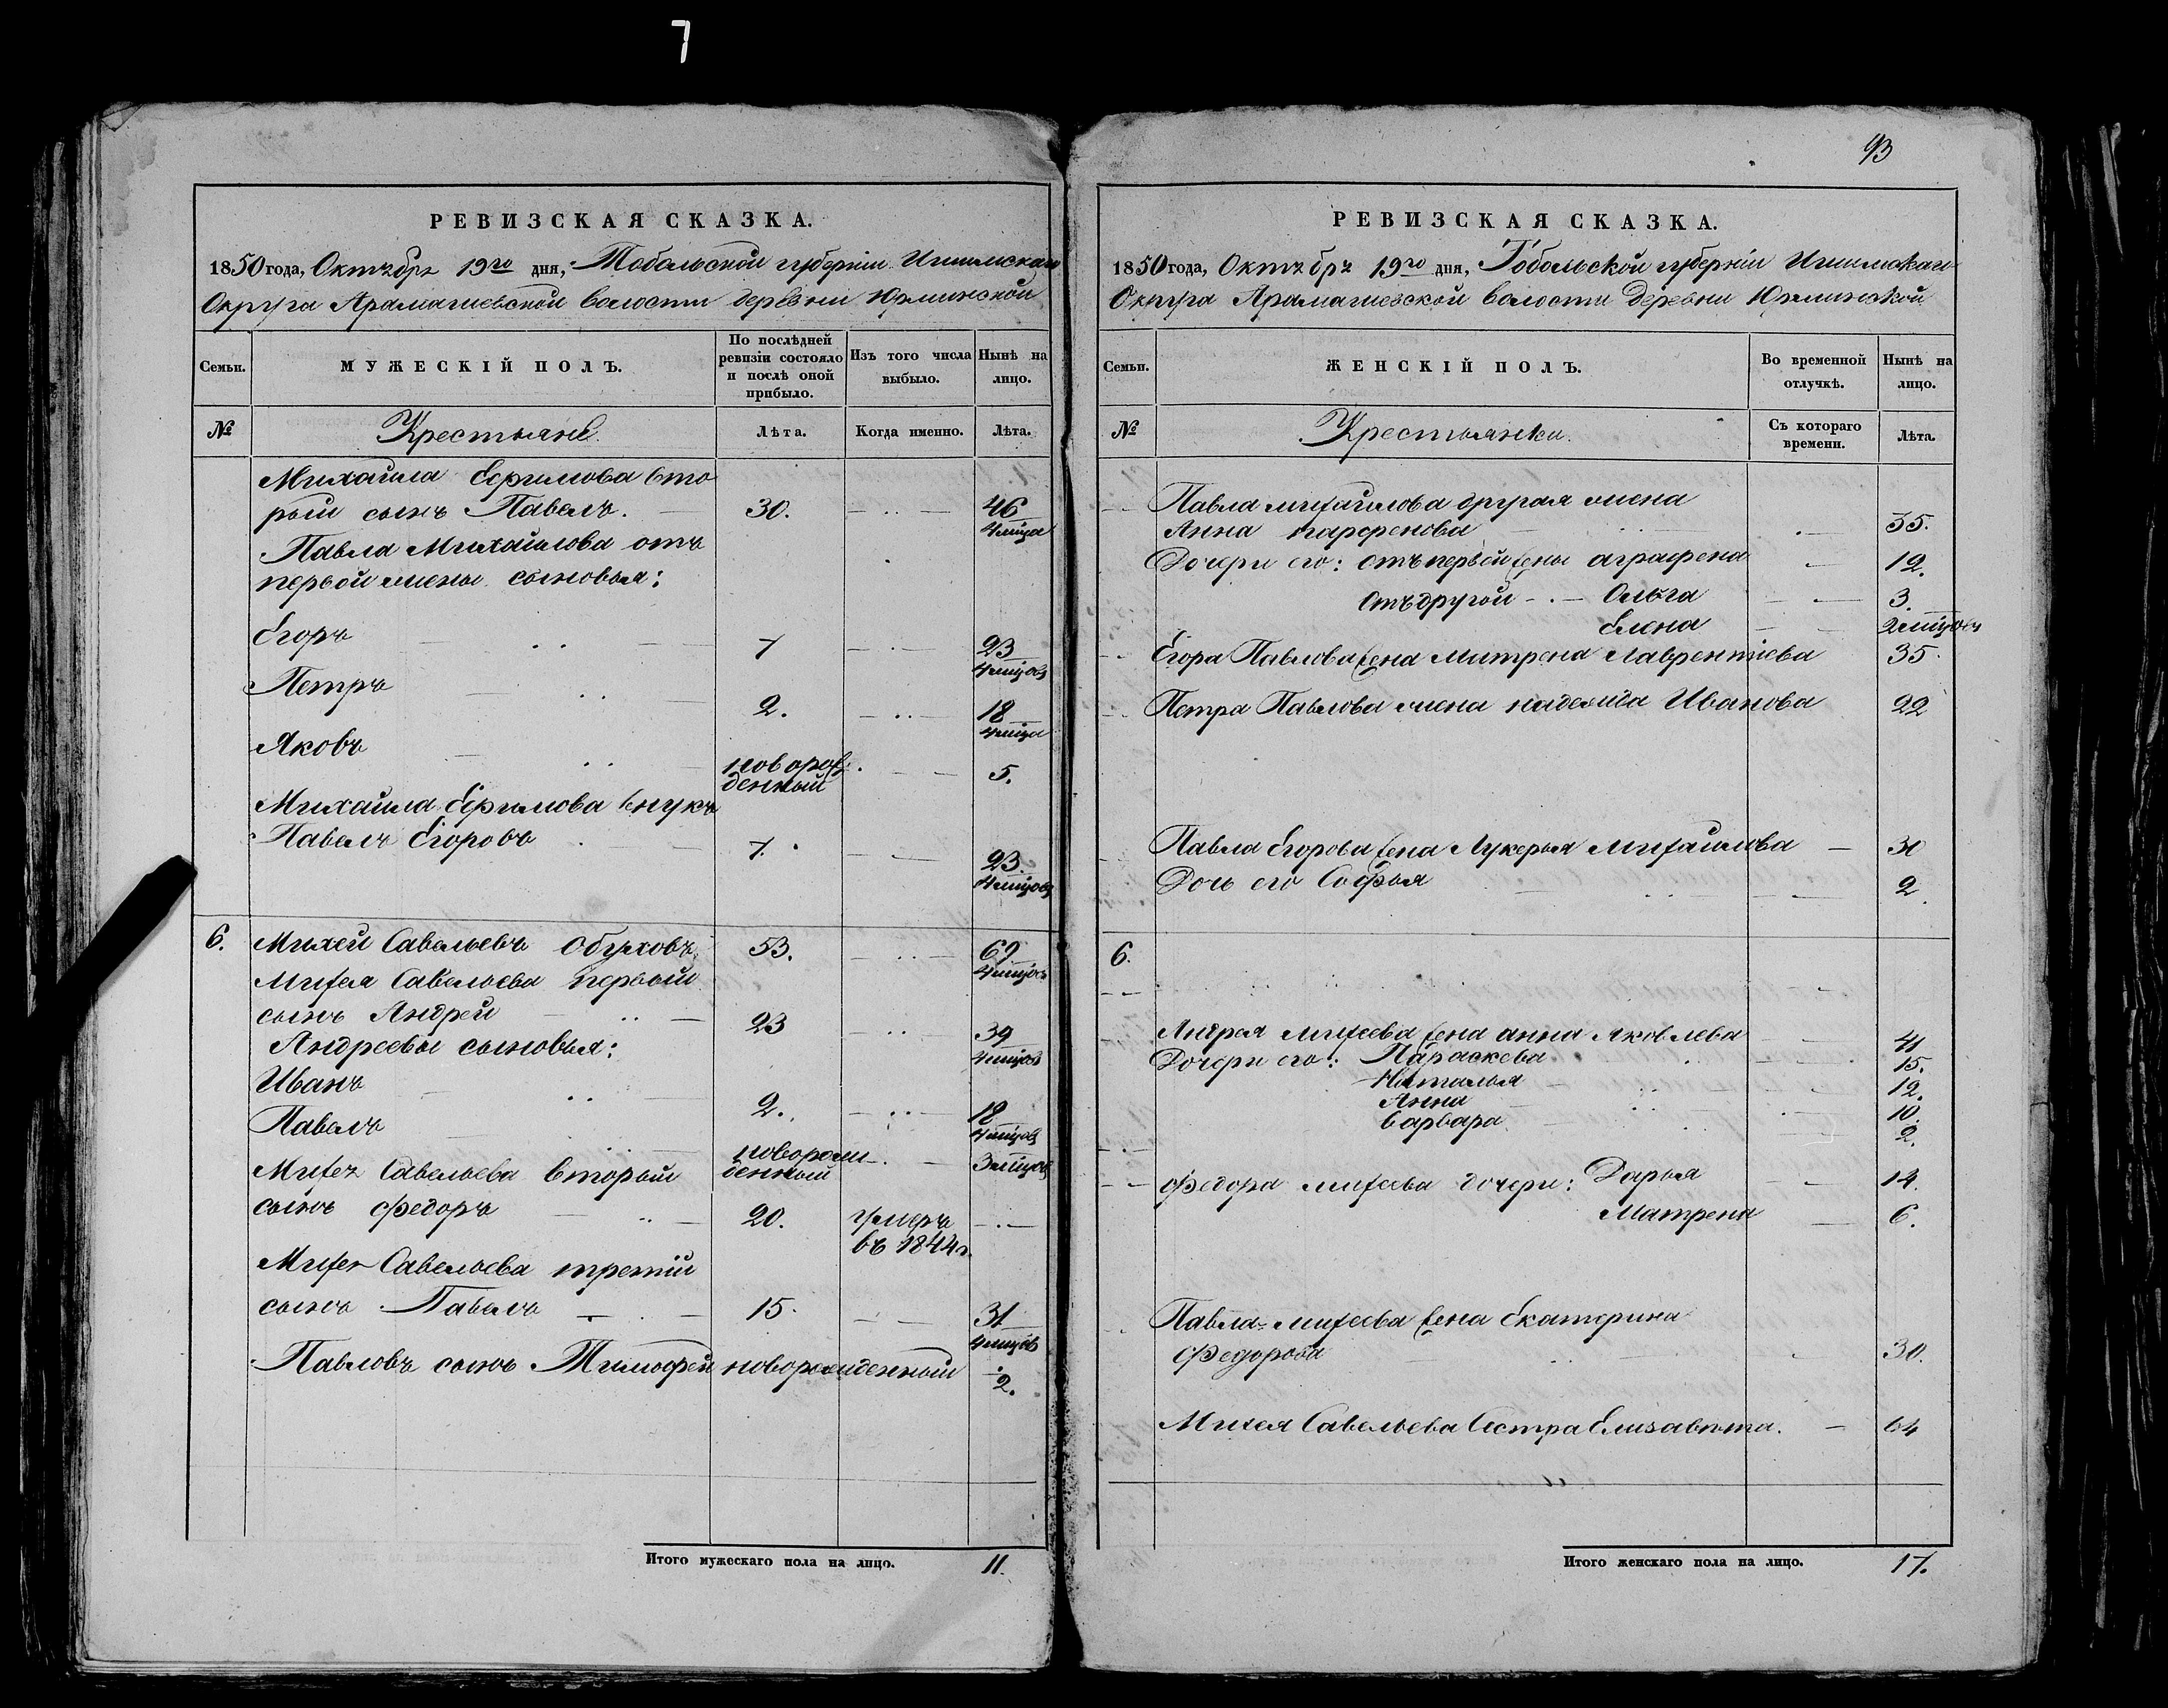 7
РЕВИЗСКАЯ СКАЗКА.
1850 года, Октября 19го дня, Тобольской губерніи Ишимскаго
Округа Арамашевской волости деревни Юрминской
Семьи. МУЖЕСКІЙ ПОЛЪ. По послѣдней ревизіи состояло и послѣ оной прибыло. Изъ того числа выбыло. Нынѣ на лицо.
№ Крестьяне. Лѣта. Когда именно. Лѣта.
Михайла Ефимова вто
рый сынъ Павелъ. 30. 46
4 мѣсяца
Павла Михайлова отъ
первой жены сыновья:
Егоръ 7 23
4 мѣсяцовъ
Петръ 2. 18
4 мѣсяца
Яковъ новорож
денный 5.
Михайла Ефимова внукъ
Павелъ Егоровъ 7. 23.
4 мѣсяцовъ
6. Михей Савельевъ Обуховъ 53. 69
4 мѣсяцовъ
Михея Савельева первый
сынъ Андрей 23 39
4 мѣсяцовъ
Андреевы сыновья:
Иванъ 2. 18
4 мѣсяцовъ
Павелъ новорож
денный 3 мѣсяцовъ
Михея Савельева вторый
сынъ Федоръ 20. умеръ
въ 1844 г.
Михея Савельева третій
сынъ Павелъ 15. 31
4 мѣсяцовъ
Павловъ сынъ Тимофей новорожденный 2.
Итого мужескаго пола на лицо. 11.
93
РЕВИЗСКАЯ СКАЗКА.
1850 года, Октября 19го дня, Тобольской губерніи Ишимскаго
Округа Арамашевской волости деревни Юрминской
Семьи. ЖЕНСКІЙ ПОЛЪ. Во временной отлучкѣ. Нынѣ на лицо.
№ Крестьянки. Съ котораго времени. Лѣта.
Павла Михайлова другая жена
Анна Парфенова 35.
Дочери его: отъ первой жены Аграфена 12.
отъ другой Ольга 3.
Елена 2 мѣсяцовъ
Егора Павлова жена Матрена Лаврентіева 35.
Петра Павлова жена Надежда Иванова 22
Павла Егорова жена Лукерья Михайлова 30
Дочь его Софья 2.
6.
Андрея Михеева жена Анна Яковлева 41
Дочери его: Параскева 15.
Наталья 12.
Анна 10.
Варвара 2.
Федора Михеева дочери: Дарья 14.
Матрена 6.
Павла Михеева жена Екатерина
Федорова 30.
Михея Савельева Сестра Елизавѣта. 64
Итого женскаго пола на лицо. 17.